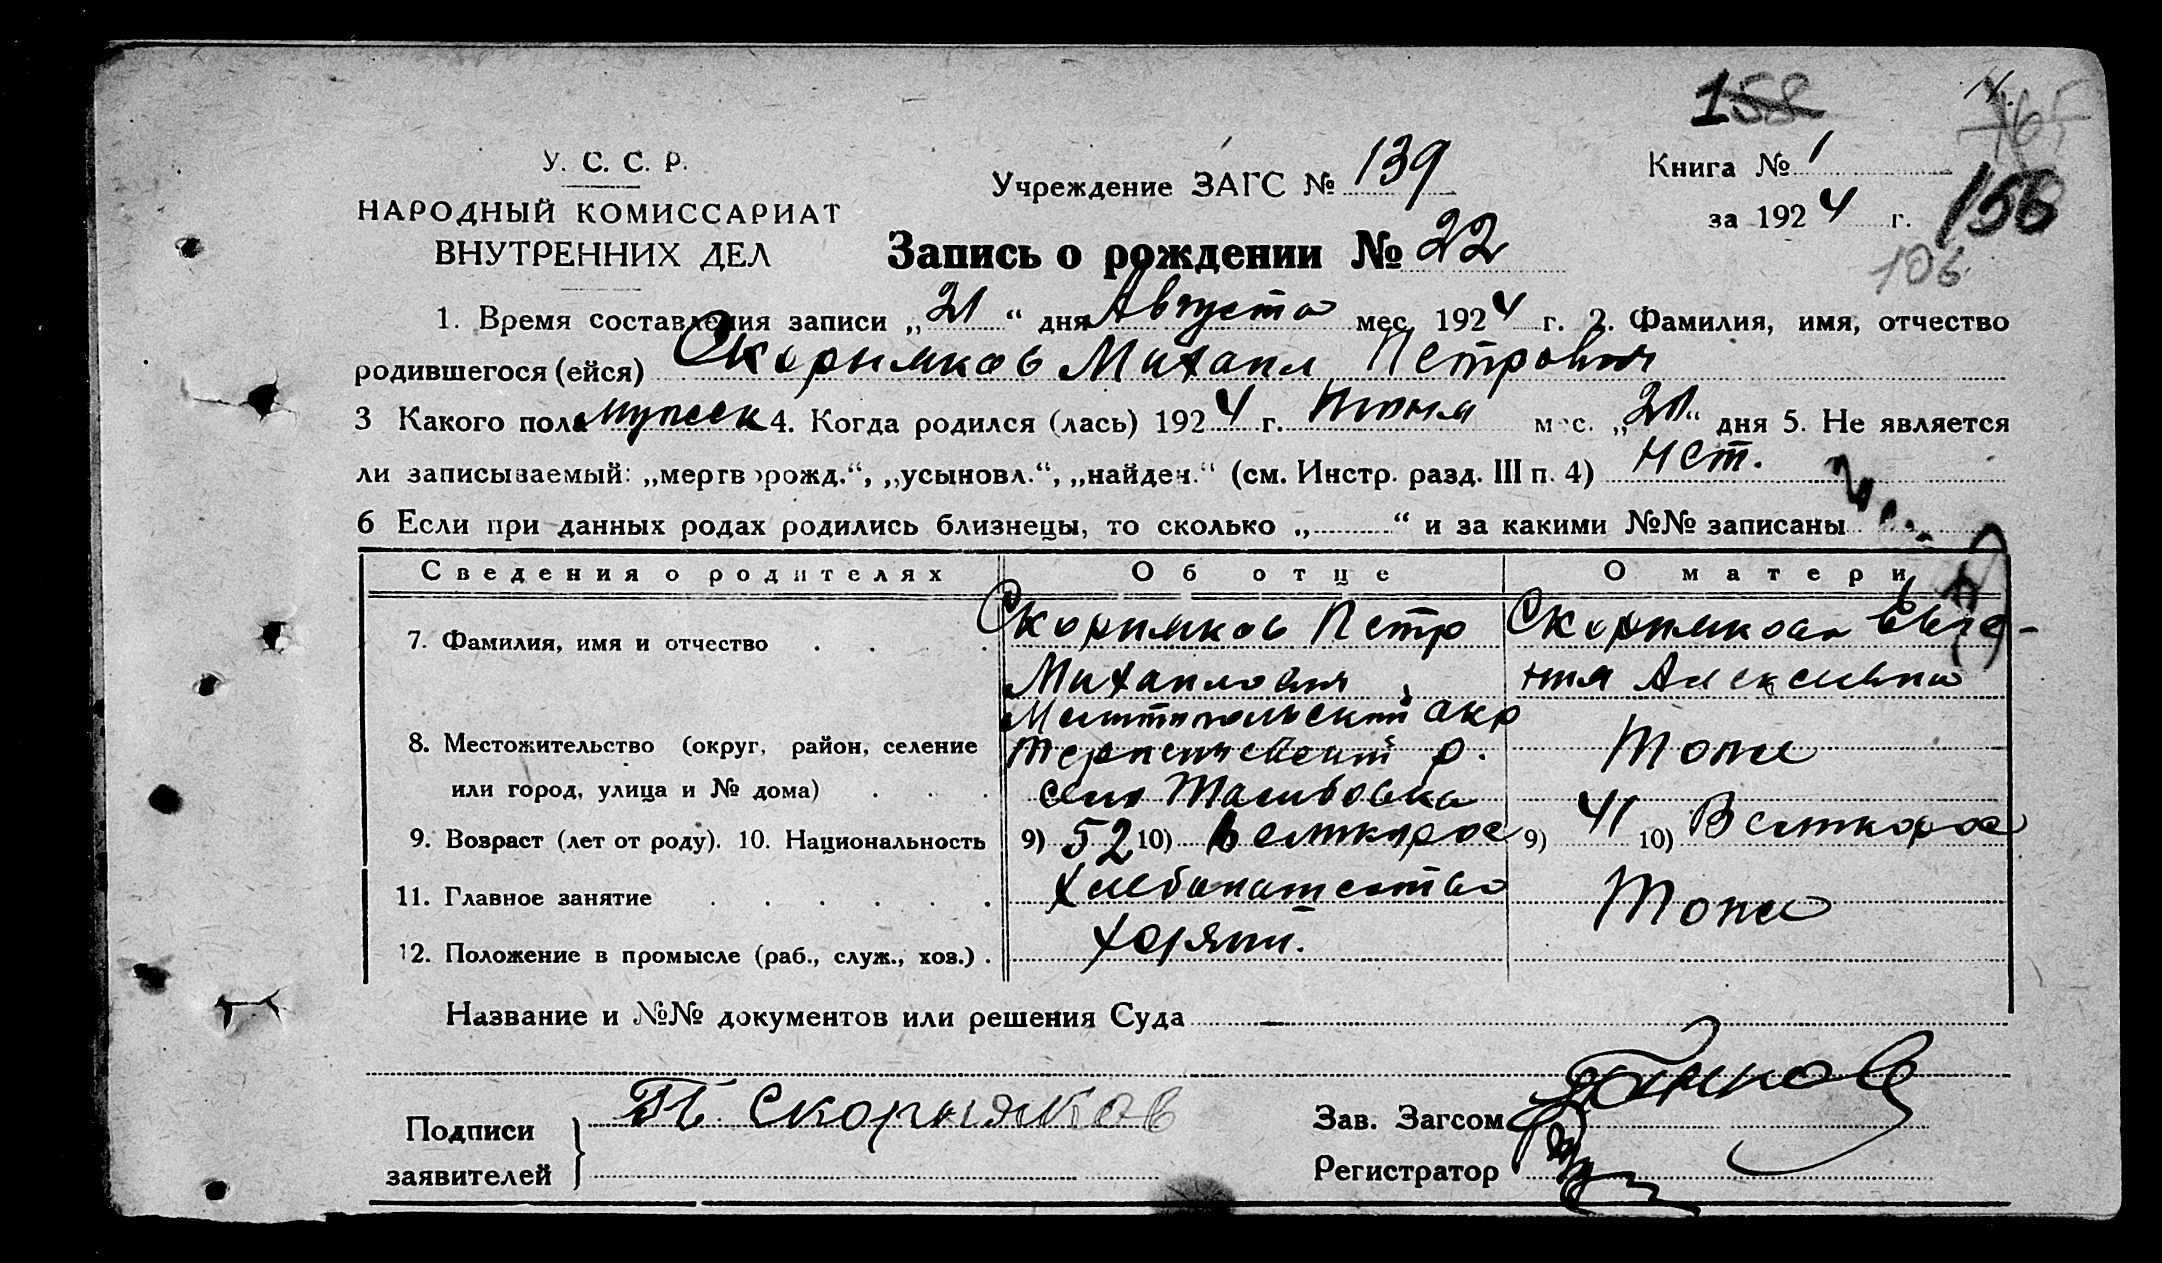 158
165
У. С. С. Р.
Учреждение ЗАГС № 139
Книга № 1
НАРОДНЫЙ КОМИССАРИАТ
за 1924 г. 156
ВНУТРЕННИХ ДЕЛ
Запись о рождении № 22
106
1. Время составления записи „21“ дня Августа мес. 1924 г. 2. Фамилия, имя, отчество
родившегося (ейся) Скорняков Михаил Петрович
3 Какого пола мужск 4. Когда родился (лась) 1924 г. Июня мес. „21“ дня 5. Не является
ли записываемый: „мертворожд.“, „усыновл.“, „найден.“ (см. Инстр. разд. III п. 4) Нет.
6 Если при данных родах родились близнецы, то сколько „..........“ и за какими №№ записаны
Сведения о родителях Об отце О матери
7. Фамилия, имя и отчество . . . . Скорняков Петр Скорнякова Евге-
Михайлович ния Алексеевна
Мелитопольский окр
8. Местожительство (округ, район, селение Терпеневский р. Тоже
или город, улица и № дома) . . . село
9. Возраст (лет от роду). 10. Национальность 9) 52 10) Великорос 9) 41 10) Великорос
11. Главное занятие . . . . . . Хлебопашество Тоже
12. Положение в промысле (раб., служ., хоз.) . Хозяин.
Название и №№ документов или решения Суда
Подписи
П. Скорняков
Зав. Загсом
заявителей
Регистратор